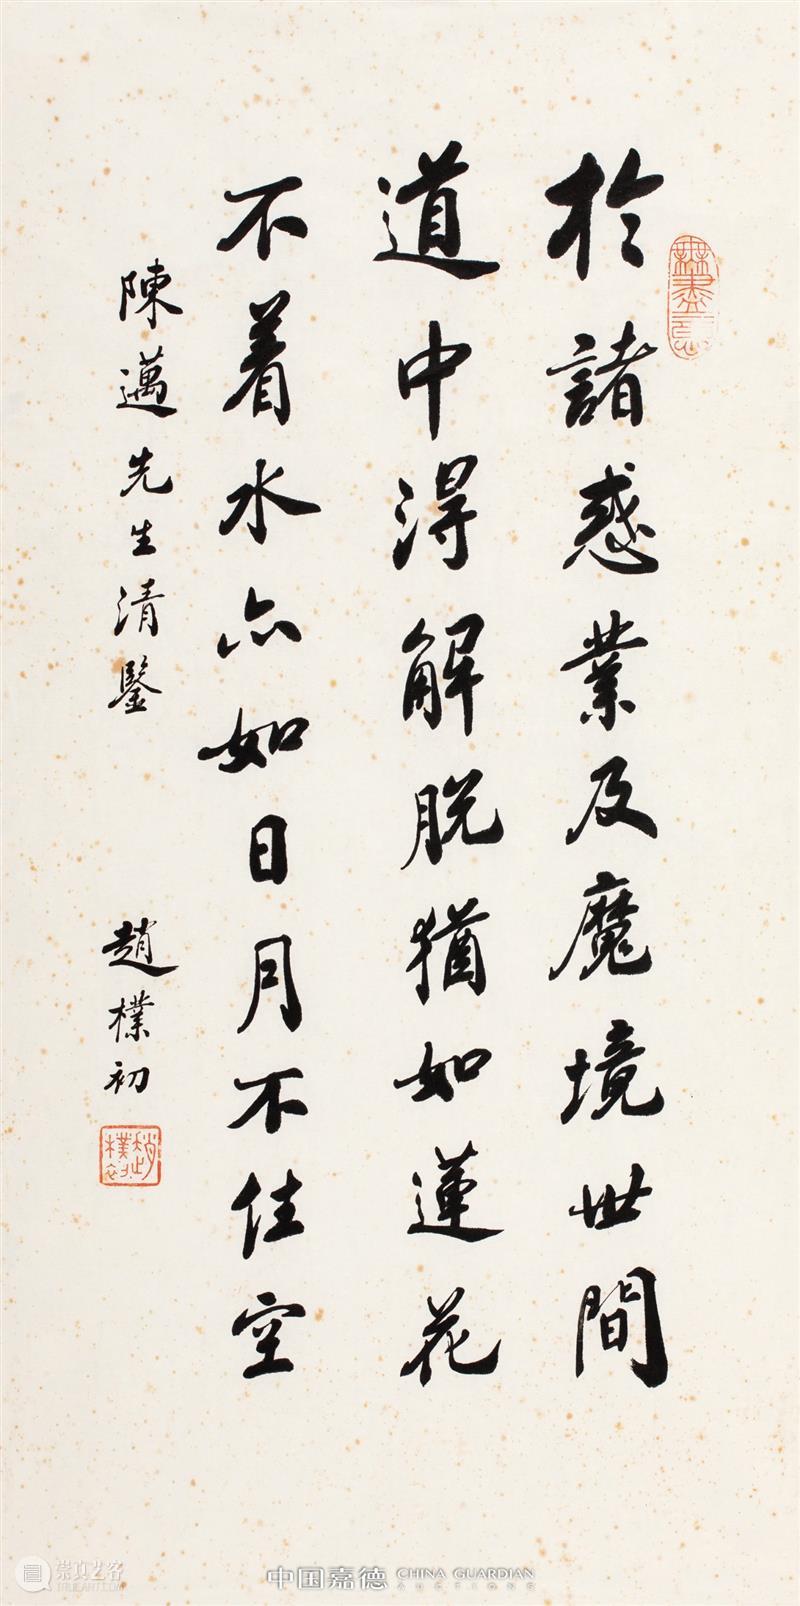 於諸惑業及魔境世間
道中得解脱猶如蓮花
不着水亦如日月不住空
陳邁先生清鑒
趙樸初
無盡意
趙樸初
崇真艺客
TRUEART.COM
中国嘉德 CHINA GUARDIAN
AUCTIONS